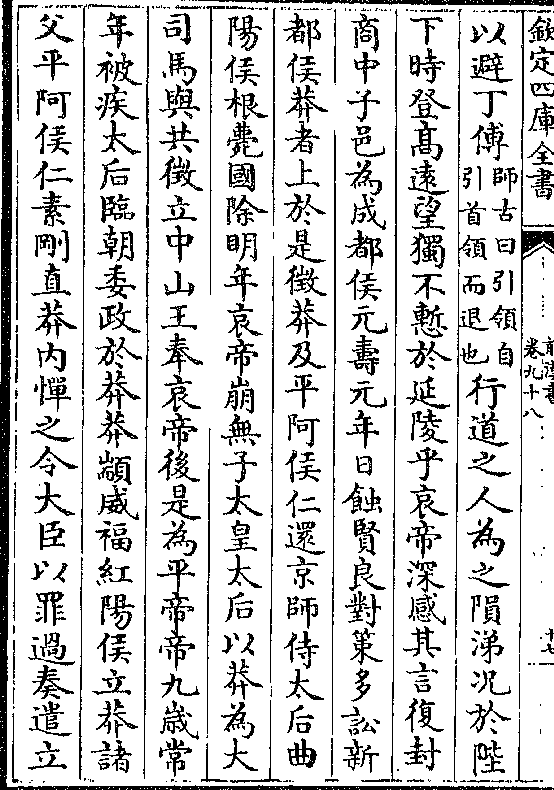 欽定四庫全書
前漢書
卷九十八
以避丁傅師古曰引領自引首領而退也行道之人為之隕涕况於陛
下時登髙逺望獨不慙於延陵乎哀帝深感其言復封
商中子邑為成都侯元壽元年日蝕賢良對策多訟新
都侯莽者上於是徵莽及平阿侯仁還京師侍太后曲
陽侯根薨國除明年哀帝崩無子太皇太后以莽為大
司馬與共徵立中山王奉哀帝後是為平帝帝九歲常
年被疾太后臨朝委政於莽莽顓威福紅陽侯立莽諸
父平阿侯仁素剛直莽内憚之令大臣以罪過奏遣立